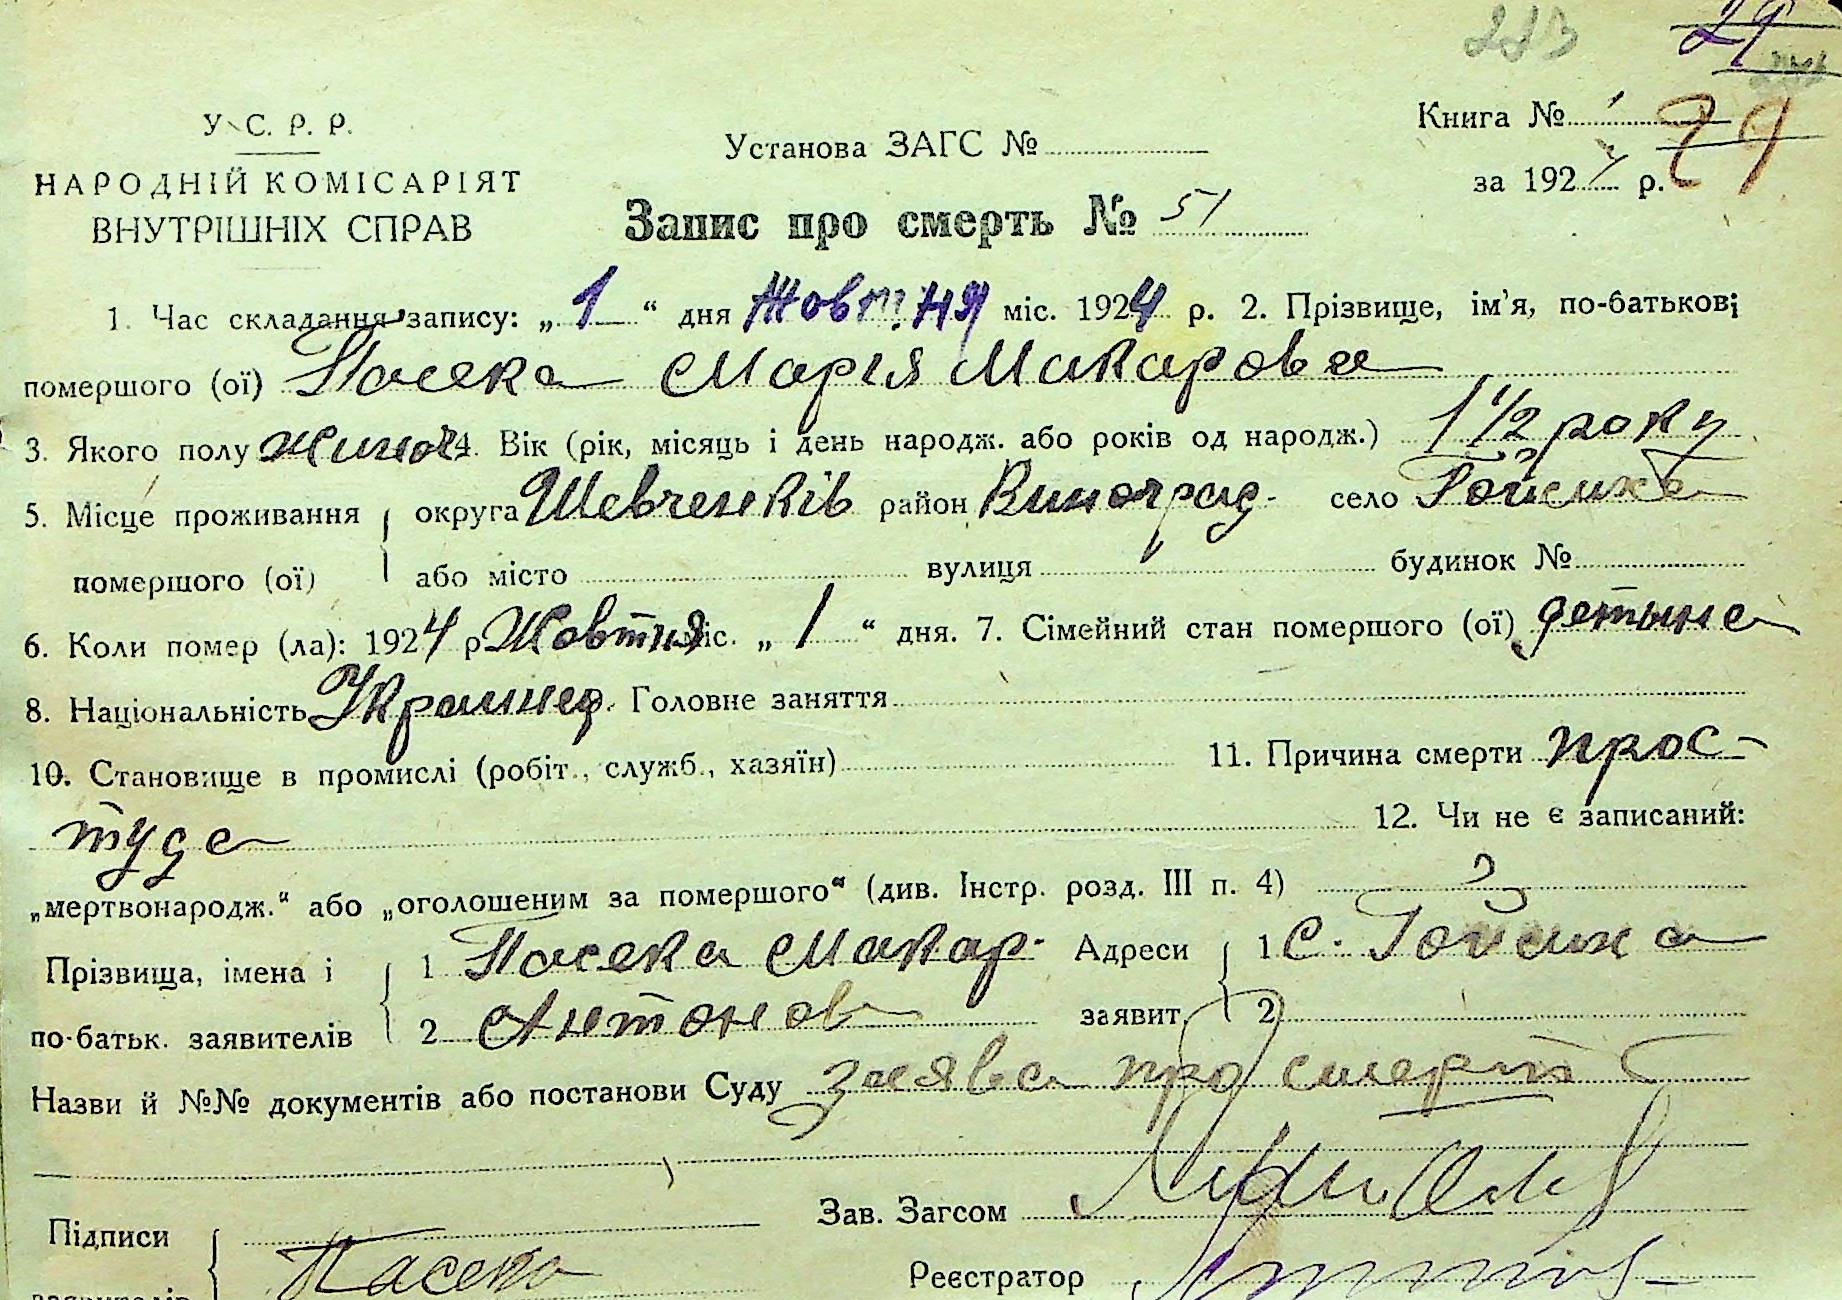 223 29
У. С. Р. Р.
НАРОДНІЙ КОМІСАРІЯТ
ВНУТРІШНІХ СПРАВ
Установа ЗАГС №
Книга № 1 29
за 1924 р.
Запис про смерть № 51
1. Час складання запису: „1“ дня Жовтня міс. 1924 р. 2. Прізвище, ім'я, по-батькові
помершого (ої) Пасека Марія Макарова
3. Якого полу жиноч 4. Вік (рік, місяць і день народж. або років од народж.) 1 1/2 року
5. Місце проживання округа Шевченків район Виноград. село Гойсиха
помершого (ої) або місто вулиця будинок №
6. Коли помер (ла): 1924 р Жовтня міс. „1“ дня. 7. Сімейний стан помершого (ої) детына
8. Національність Украинец. Головне заняття
10. Становище в промислі (робіт., служб., хазяїн) 11. Причина смерти прос-
туда 12. Чи не є записаний:
„мертвонародж.“ або „оголошеним за помершого“ (див. Інстр. розд. III п. 4)
Прізвища, імена і 1 Пасека Макар. Адреси 1 С. Гойсиха
по-батьк. заявителів 2 Антонов заявит. 2
Назви й №№ документів або постанови Суду заява про смерть
Зав. Загсом
Підписи
Пасека Реєстратор
заявителів